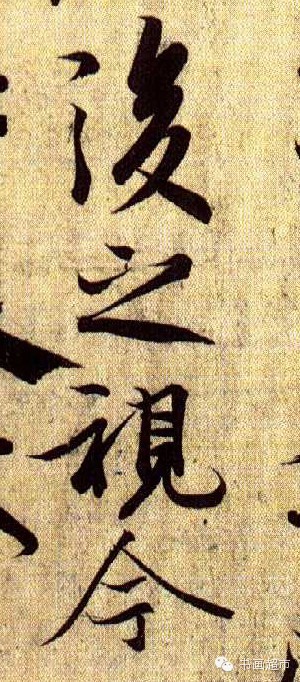 後之視今
书画超市